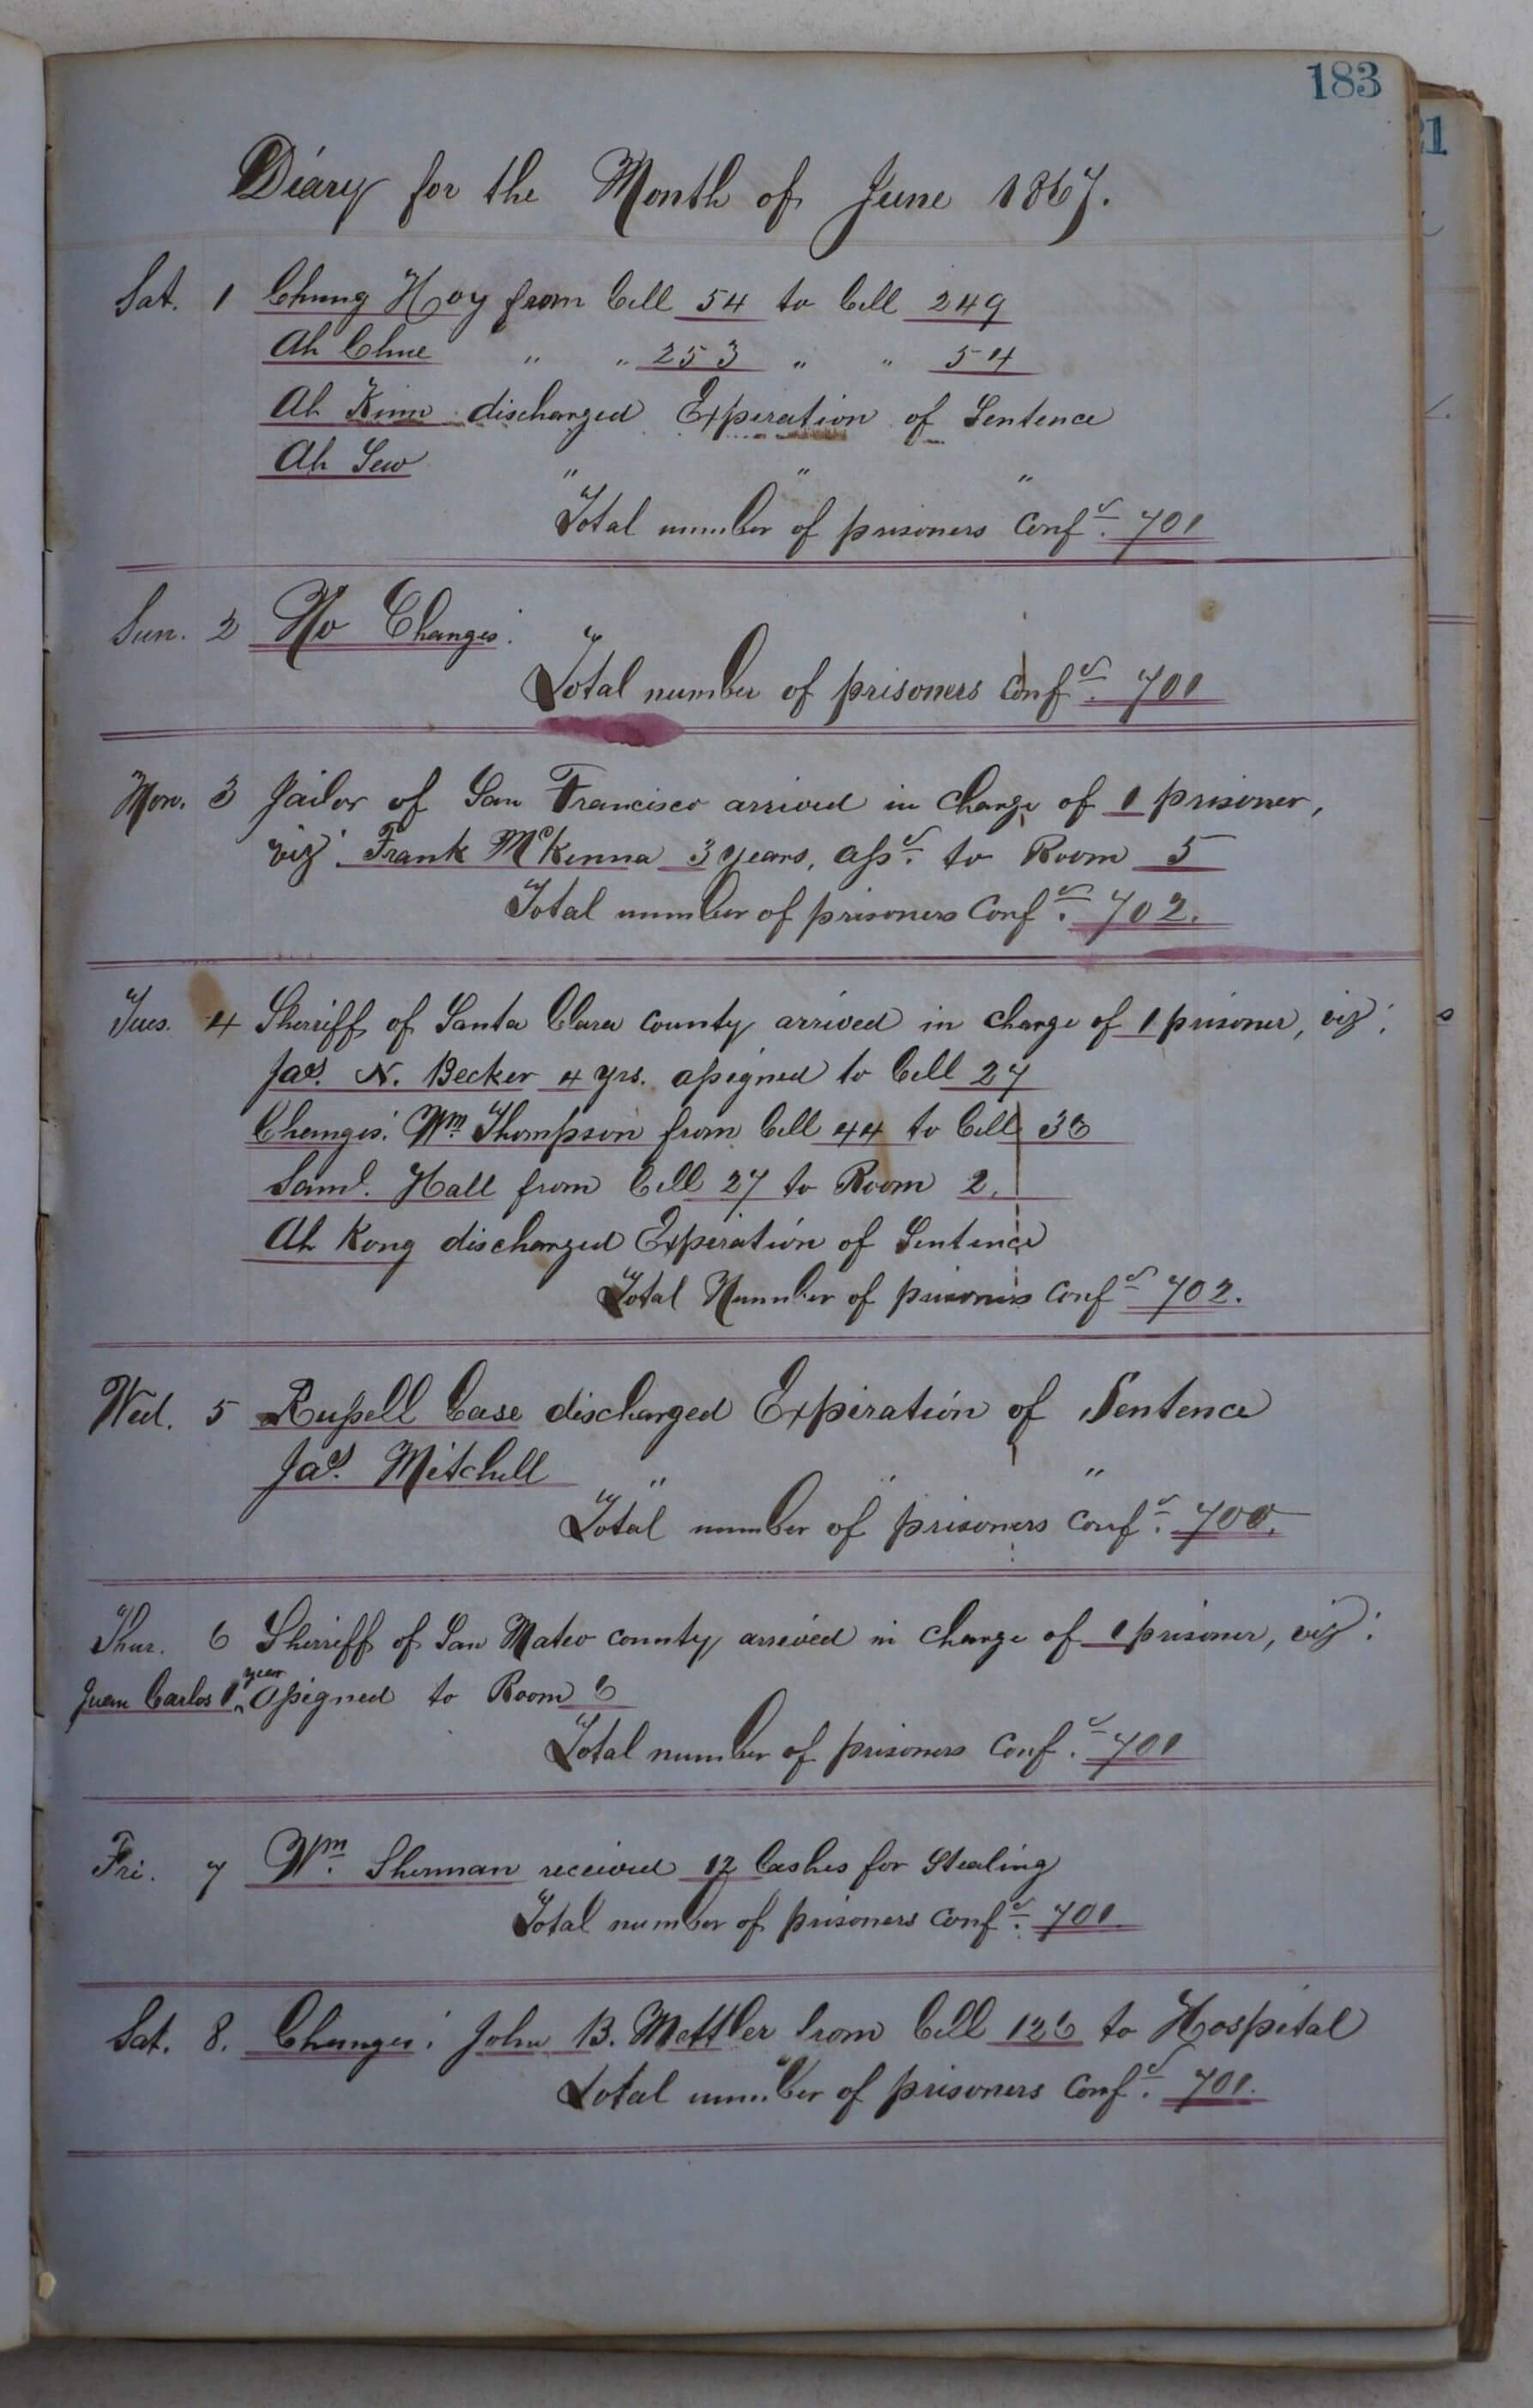 183
21
Diary for the Month of June 1867.
Sat. 1 Chung Hoy from Cell 54 to Cell 249
Ah Chue " " 253 " " 54
Ah Kim discharged Experation of Sentence
Ah Sew " " "
Total number of prisoners Confd. 701
Sun. 2 No Changes.
Total number of prisoners Confd. 701
Mon. 3 Jailor of San Francisco arrived in charge of 1 prisoner,
viz: Frank McKenna 3 years, assd. to Room 5
Total number of prisoners Confd. 702.
Tues. 4 Sherriff of Santa Clara County arrived in charge of 1 prisoner, viz:
Jas. N. Becker 4 yrs. assigned to Cell 27
Changes: Wm. Thompson from Cell 44 to Cell 33
Saml. Hall from Cell 27 to Room 2.
Ah Kong discharged Expiration of Sentence
Total Number of prisoners Confd 702.
Wed. 5 Russell Case discharged Expiration of Sentence
Jas. Mitchell " " "
Total number of prisoners Confd. 700.
Thur. 6 Sherriff of San Mateo county arrived in charge of 1 prisoner, viz:
Juan Carlos 1 year assigned to Room 6
Total number of prisoners Confd. 701
Fri. 7 Wm. Sherman received 12 lashes for Stealing
Total number of prisoners Confd. 701.
Sat. 8. Changes: John B. Mettler from Cell 126 to Hospital
Total number of prisoners Confd. 701.